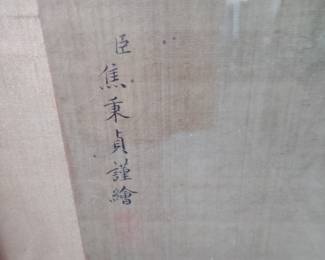 臣焦秉貞謹繪